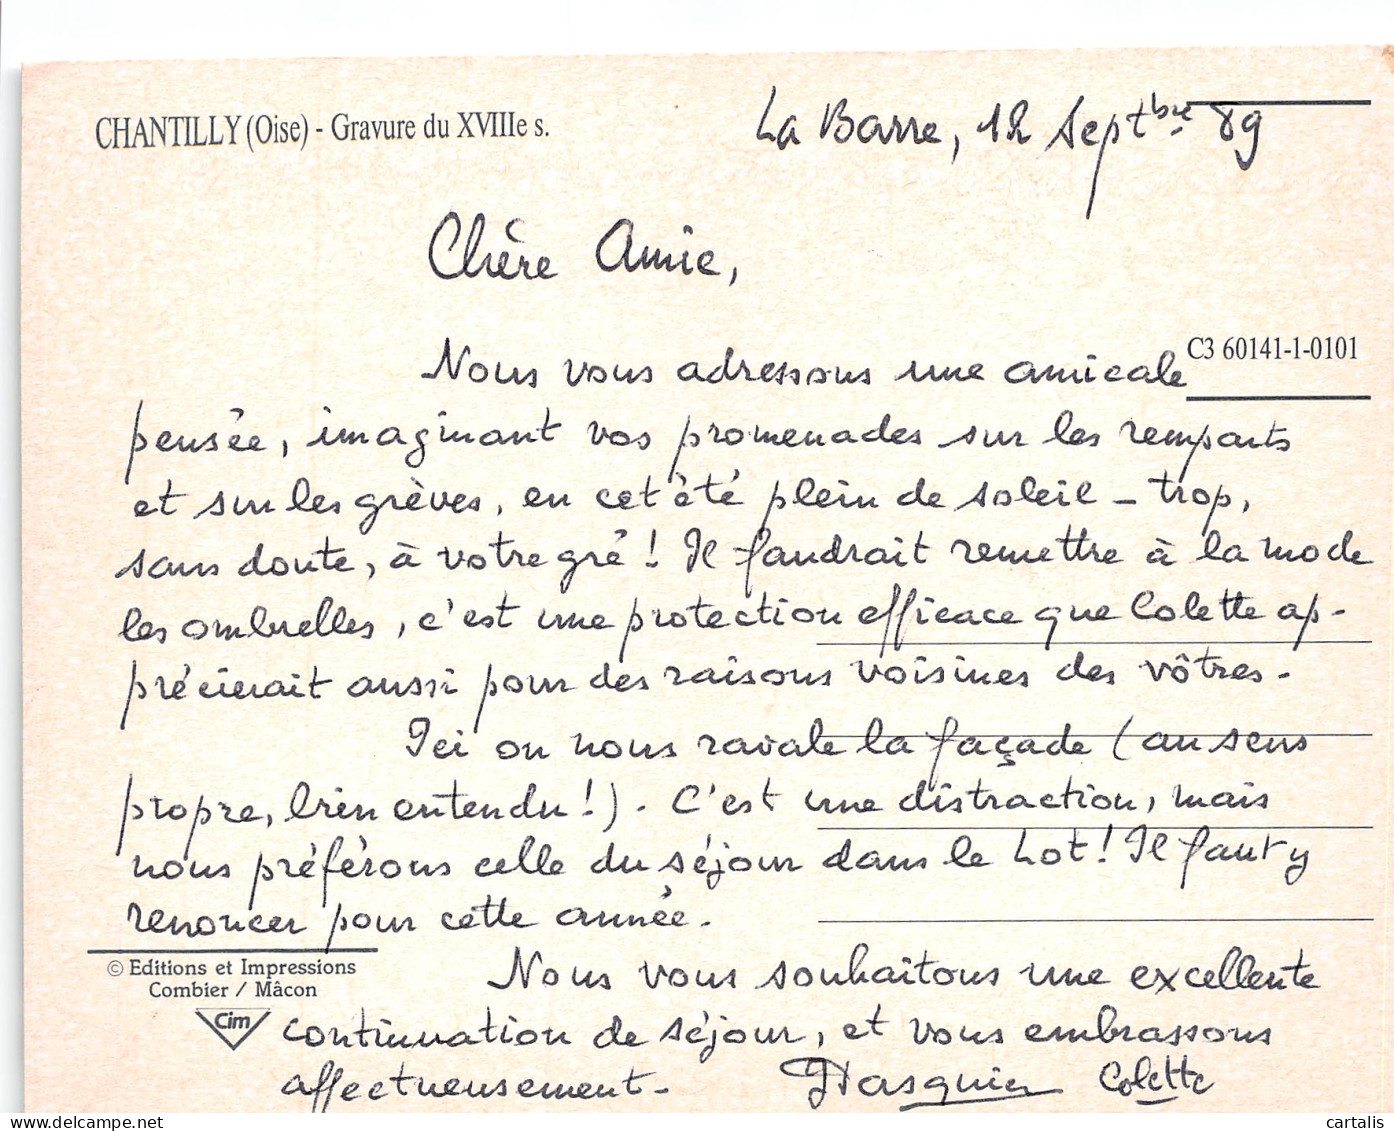 CHANTILLY (Oise) - Gravure du XVIIIe s.
La Barre, 12 Septbre 89
Chère Amie,
Nous vous adressons une amicale
C3 60141-1-0101
pensée, imaginant vos promenades sur les remparts
et sur les grèves, en cet été plein de soleil - trop,
sans doute, à votre gré ! Il faudrait remettre à la mode
les ombrelles, c'est une protection efficace que Colette ap-
précierait aussi pour des raisons voisines des vôtres.
Ici on nous ravale la façade (au sens
propre, bien entendu !). C'est une distraction, mais
nous préférons celle du séjour dans le Lot ! Il faut y
renoncer pour cette année.
© Editions et Impressions
Combier / Mâcon
Cim
Nous vous souhaitons une excellente
continuation de séjour, et vous embrassons
affectueusement. Colette
delcampe.net
cartalis